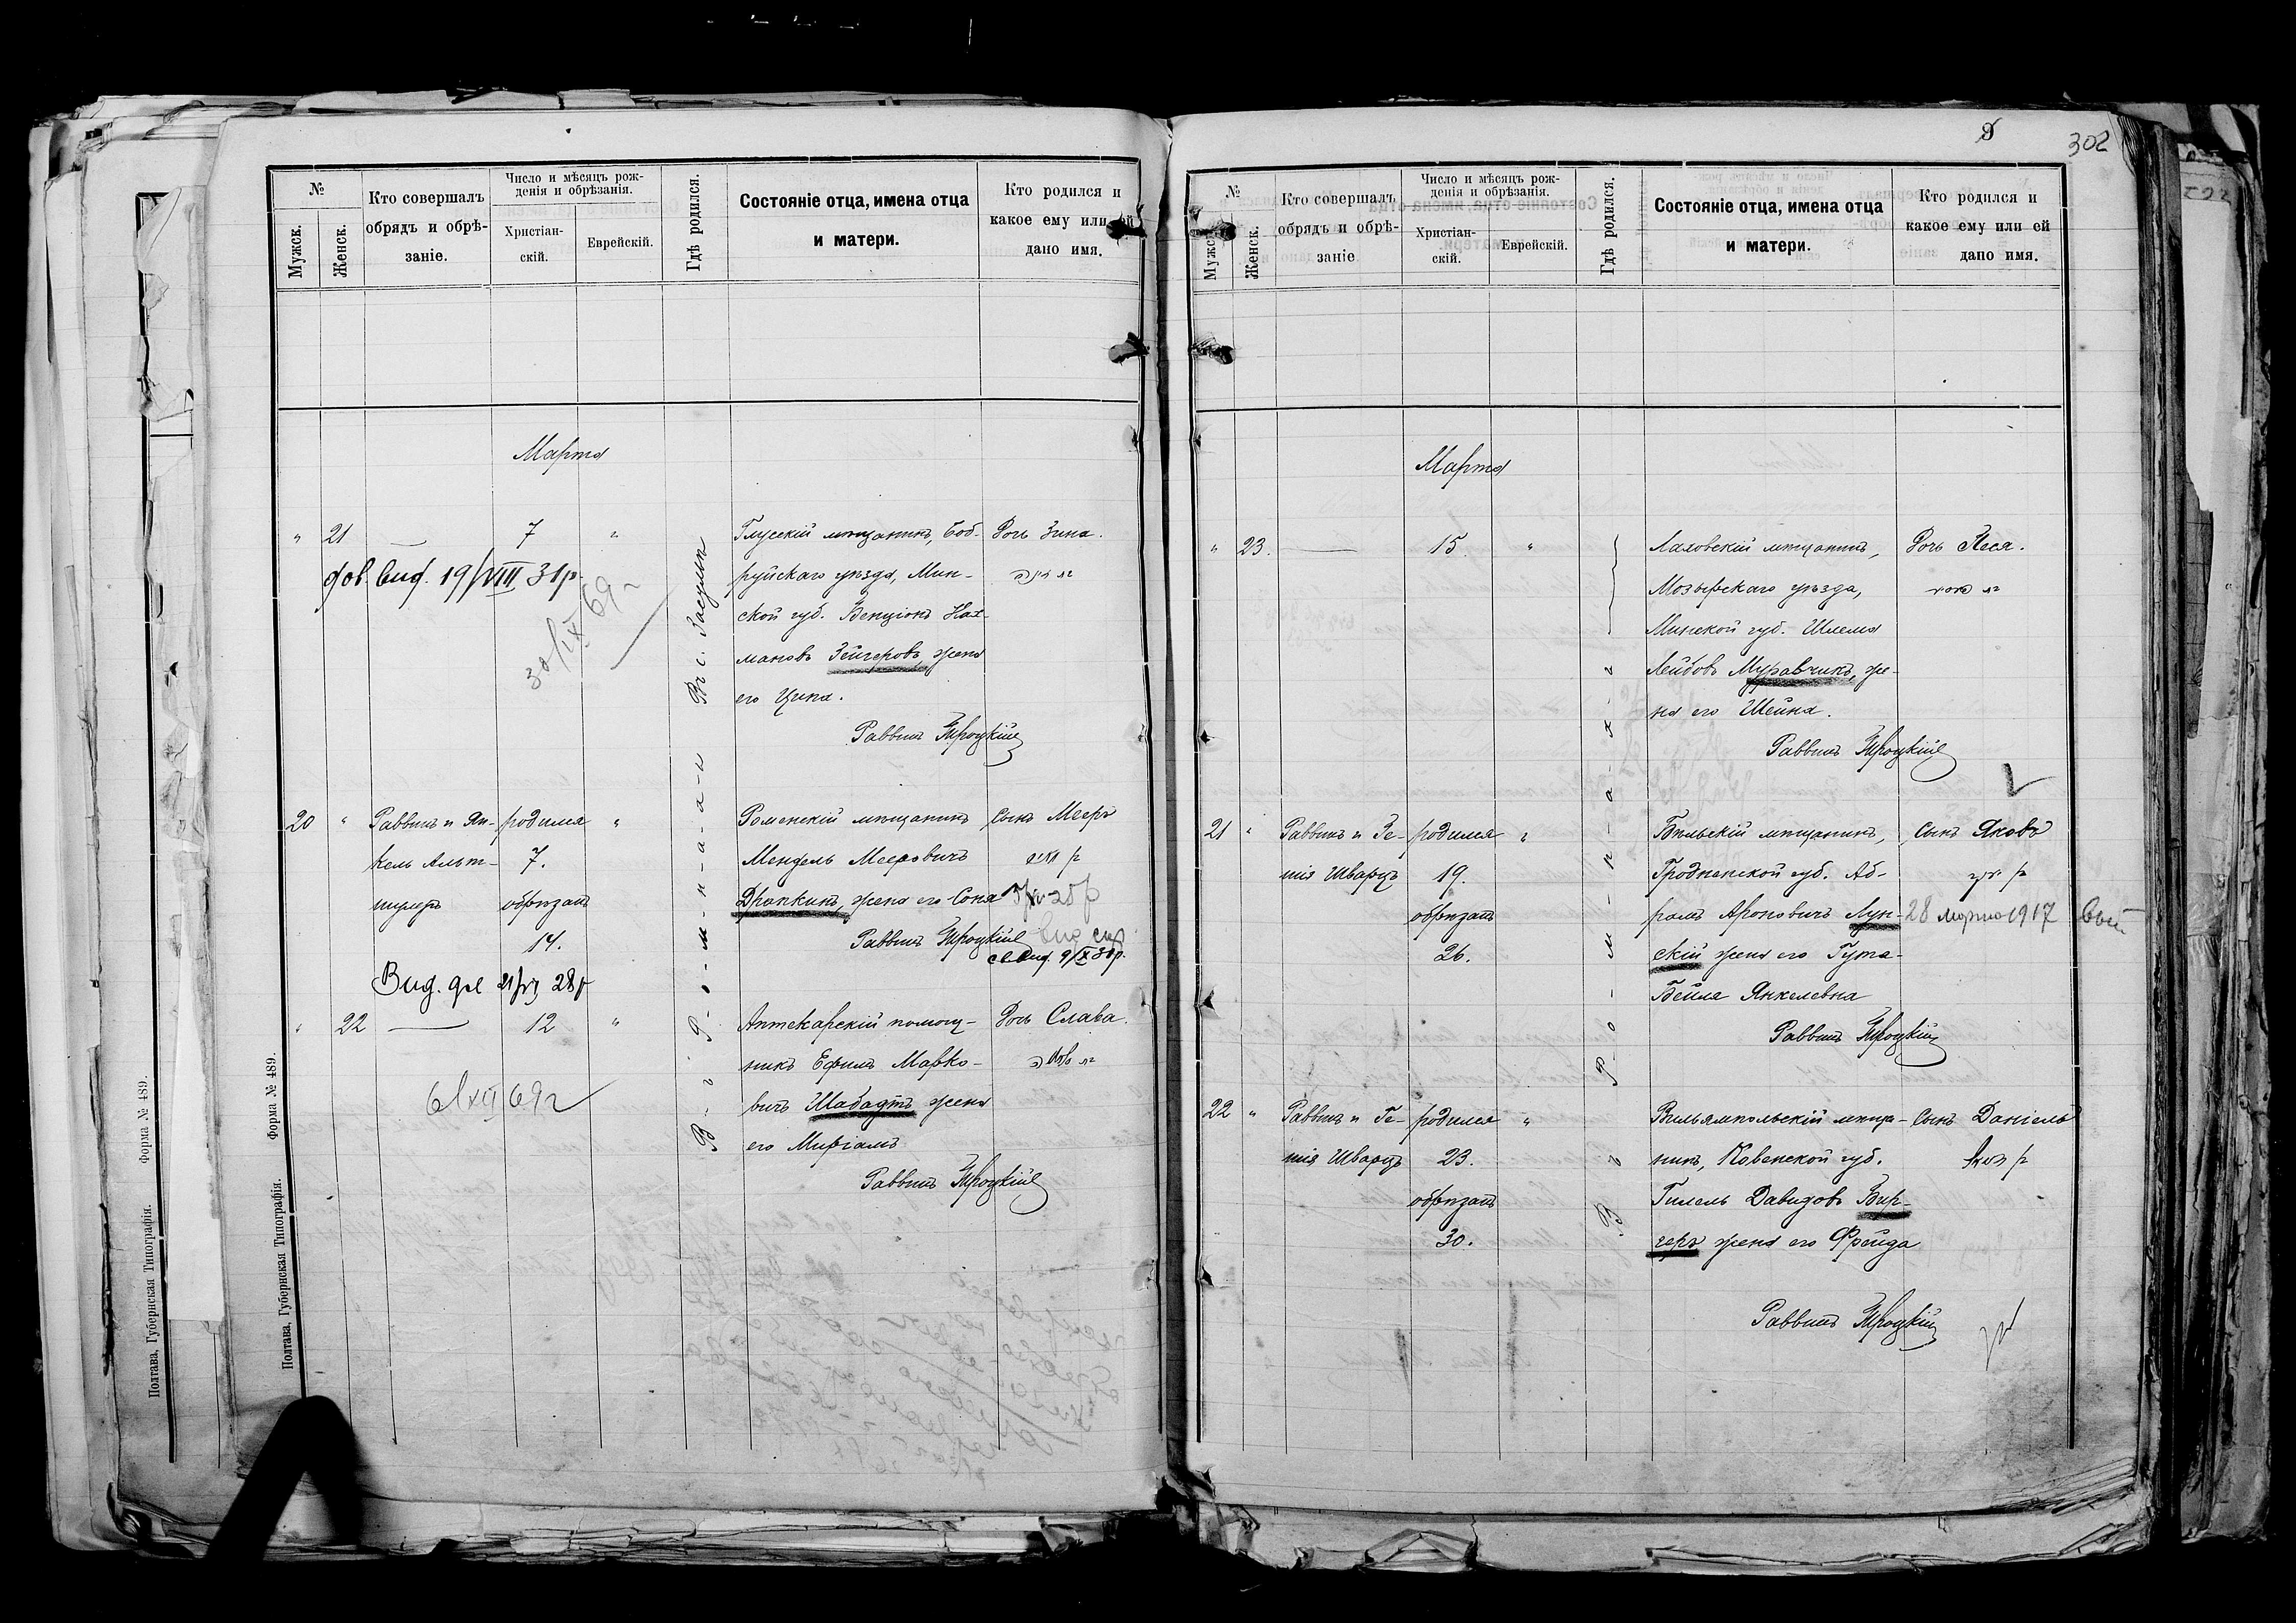 №
Мужск.
Женск.
Кто совершалъ
обрядъ и обрѣ-
заніе.
Число и мѣсяцъ рож-
денія и обрѣзанія.
Христіан-
скій.
Еврейскій.
Гдѣ родился.
Состояніе отца, имена отца
и матери.
Кто родился и
какое ему или ей
дано имя.
Марта
" 21 — 7 "
Въ с. Засулье
Глускій мѣщанинъ, Боб-
руйскаго уѣзда, Мин-
ской губ. Бенціонъ Нах-
мановъ Зейгеровъ жена
его Ципа.
Дочь Зина.
Раввинъ Троцкій
дов. вид. 19/VIII 31р.
30/IX 69г
В-ъ Р-о-м-н-а-х-ъ
20 "
Раввинъ и Ян-
кель Альт-
шулеръ
родился
7.
обрѣзанъ
14.
"
Роменскій мѣщанинъ
Мендель Мееровичъ
Драпкинъ, жена его Соня
Раввинъ Троцкій
Сынъ Мееръ
св. вид. 9/X 30р.
Вид. 21/VI 28р
" 22 — 12 "
Аптекарскій помощ-
никъ Ефимъ Марко-
вичъ Шабадъ жена
его Миріамъ
Раввинъ Троцкій
Дочь Слава.
6/XII 69г
Форма № 489.
Полтава, Губернская Типографія.
Форма № 489.
Полтава, Губернская Типографія.
302
№
Мужск.
Женск.
Кто совершалъ
обрядъ и обрѣ-
заніе
Число и мѣсяцъ рож-
денія и обрѣзанія.
Христіан-
скій.
Еврейскій.
Гдѣ родился.
Состояніе отца, имена отца
и матери.
Кто родился и
какое ему или ей
дано имя.
Марта
" 23. — 15. "
В-ъ Р-о-м-н-а-х-ъ
Лаховскій мѣщанинъ,
Мозырскаго уѣзда,
Минской губ. Шлема
Лейбовъ Муравчикъ, же-
на его Шейна.
Раввинъ Троцкій
Дочь Песя.
21 "
Раввинъ и Ге-
нія Шварцъ
родился
19.
обрѣзанъ
26.
"
Бѣльскій мѣщанинъ,
Гродненской губ. Аб-
рамъ Ароновичъ Лун-
скій жена его Гута-
Бейля Янкелевна
Раввинъ Троцкій
Сынъ Яковъ
28 марта 1917
22 "
Раввинъ и Ге-
нія Шварцъ
родился
23.
обрѣзанъ
30.
"
Вильямпольскій мѣща-
нинъ, Ковенской губ.
Гилель Давидовъ Вир-
геръ жена его Фрейда
Раввинъ Троцкій
Сынъ Даніель